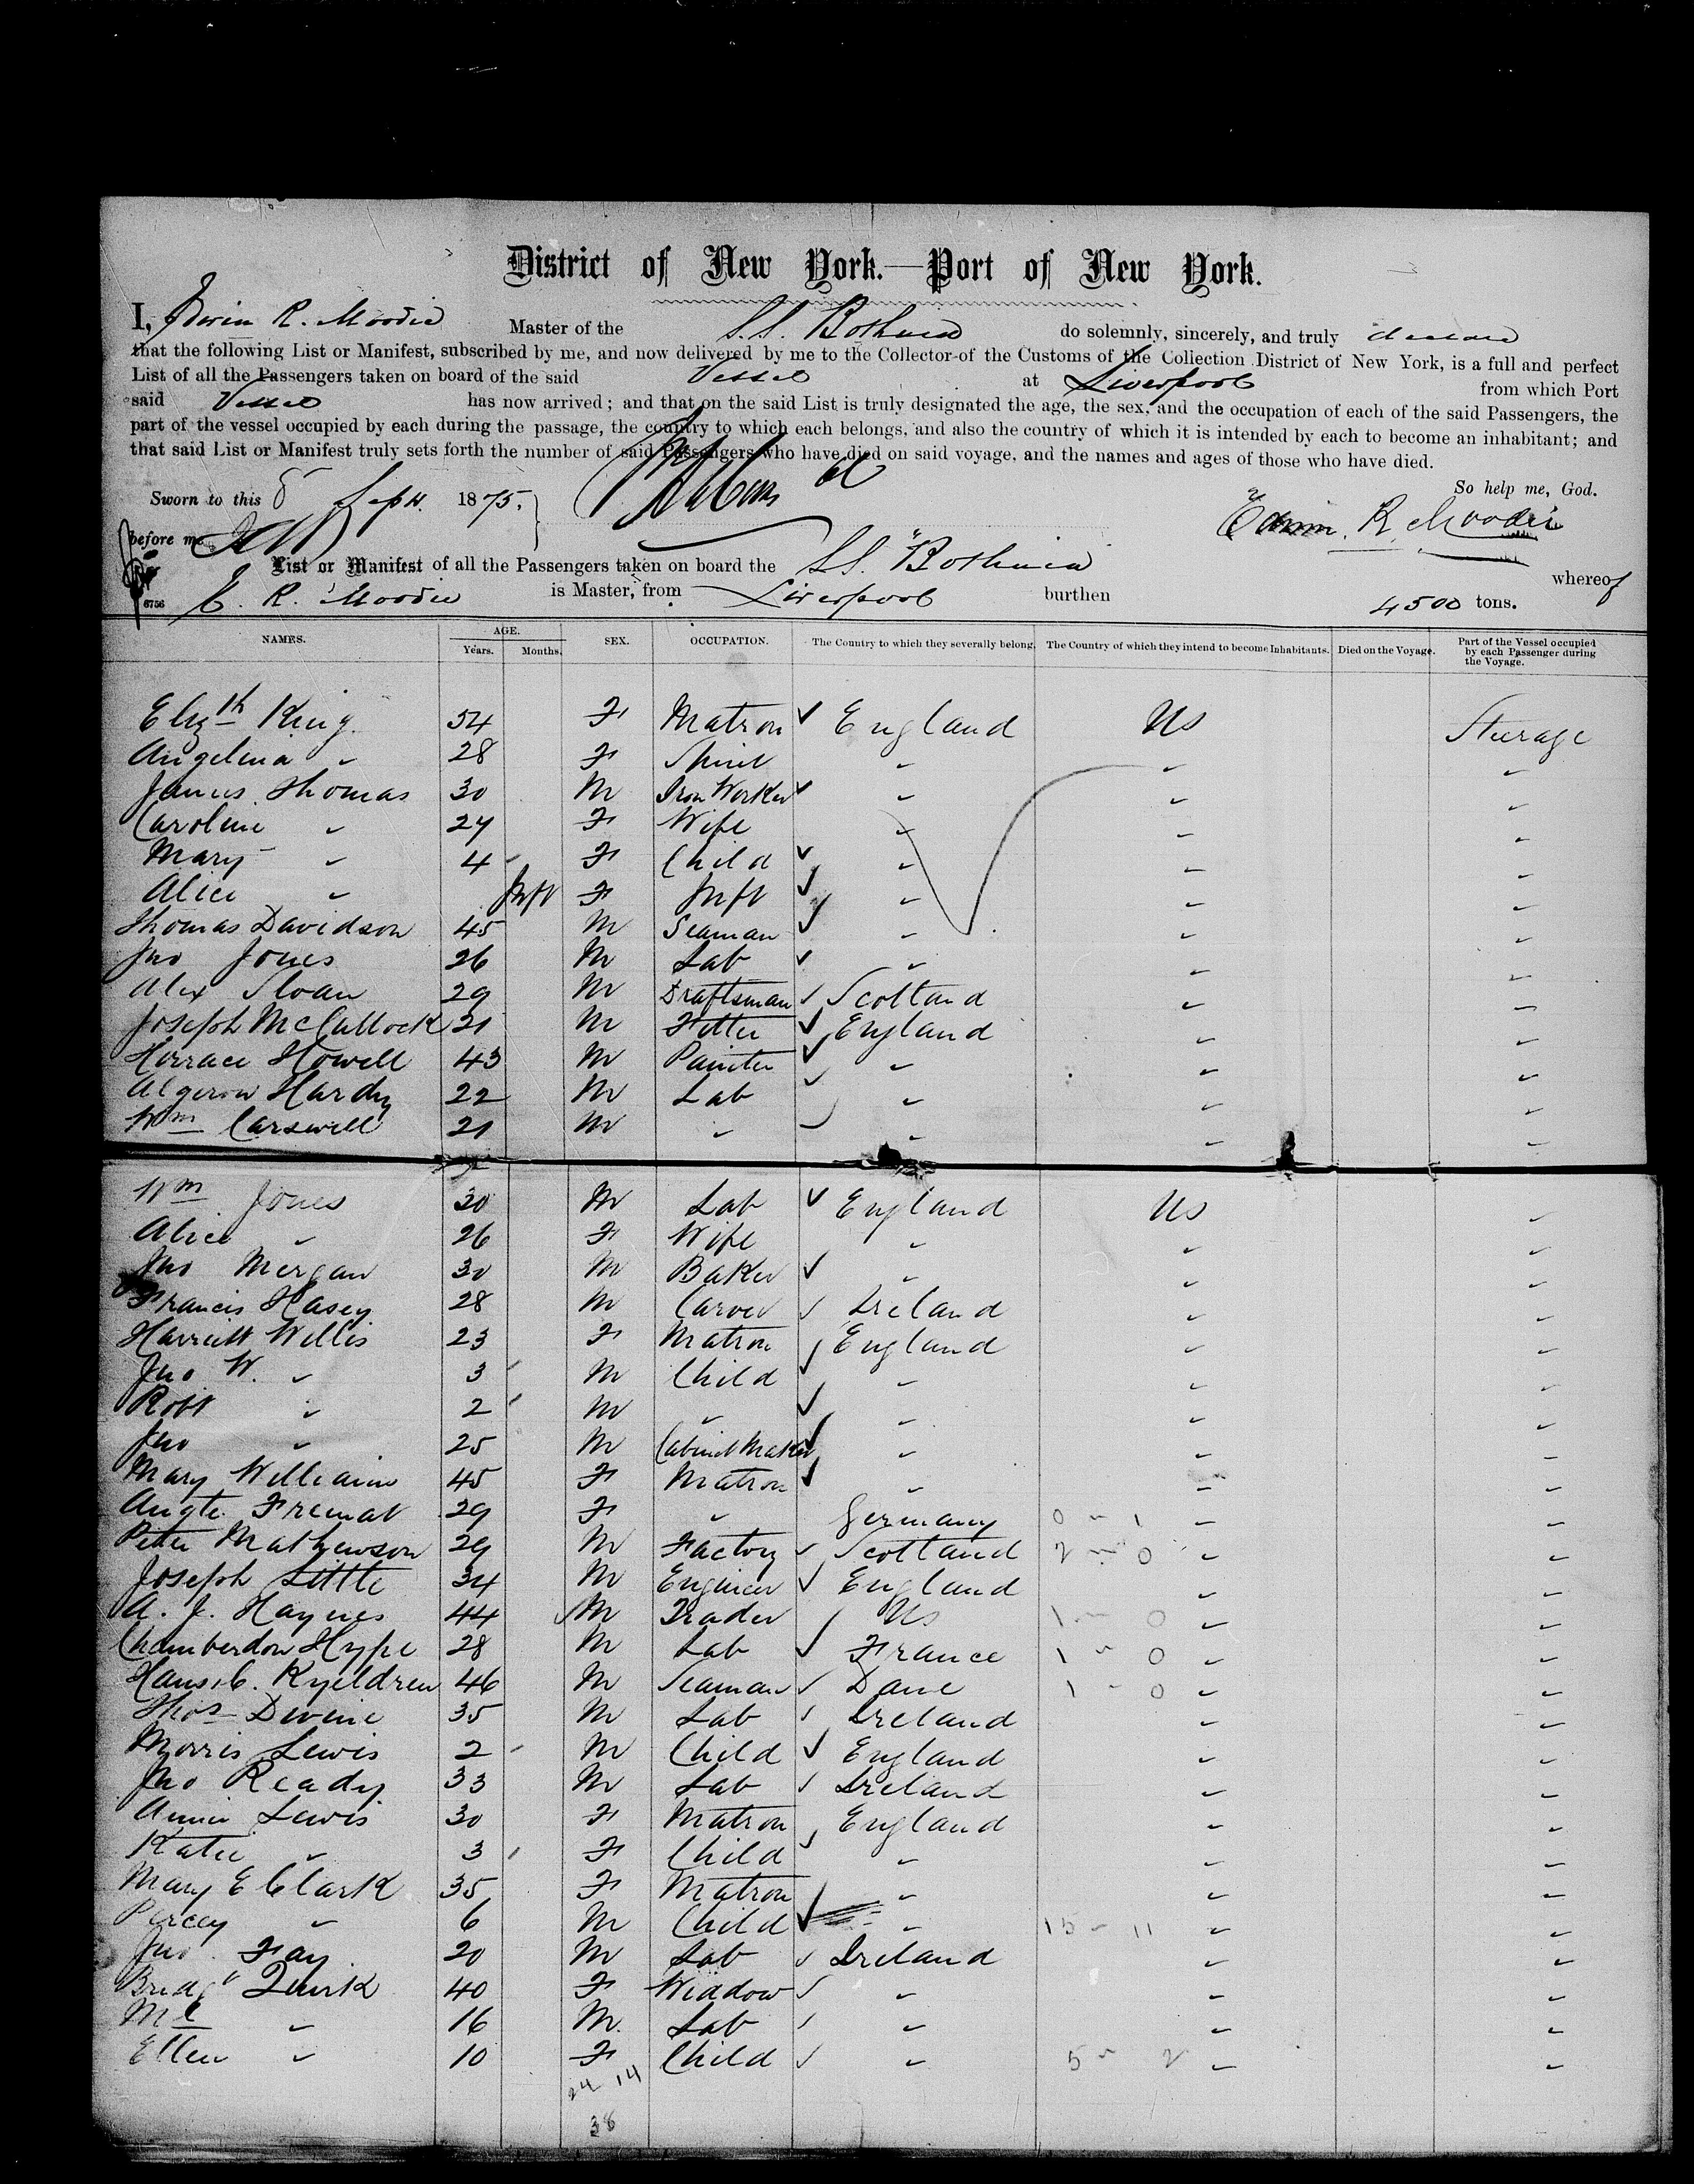 District of New York.—Port of New York.
I, Edwin R. Moodie Master of the S.S. Bothnia do solemnly, sincerely, and truly declare
that the following List or Manifest, subscribed by me, and now delivered by me to the Collector of the Customs of the Collection District of New York, is a full and perfect
List of all the Passengers taken on board of the said Vessel at Liverpool from which Port
said Vessel has now arrived; and that on the said List is truly designated the age, the sex, and the occupation of each of the said Passengers, the
part of the vessel occupied by each during the passage, the country to which each belongs, and also the country of which it is intended by each to become an inhabitant; and
that said List or Manifest truly sets forth the number of said Passengers who have died on said voyage, and the names and ages of those who have died.
So help me, God.
Sworn to this 8 Sept. 1875.
Edwin. R. Moodie
before me
List or Manifest of all the Passengers taken on board the S.S. "Bothnia whereof
6756 E. R. Moodie is Master, from Liverpool burthen 4500 tons.
NAMES. AGE. Years. Months. SEX. OCCUPATION. The Country to which they severally belong. The Country of which they intend to become Inhabitants. Died on the Voyage. Part of the Vessel occupied by each Passenger during the Voyage.
Elizth King 54 F Matron ✓ England US Steerage
Angelina " 28 F Spinst " " "
James Thomas 30 M Iron Worker ✓ " " "
Caroline " 24 F Wife " " "
Mary " 4 F Child ✓ " " "
Alice " Inft F Inft ✓ " " "
Thomas Davidson 45 M Seaman ✓ " " "
Jno Jones 26 M Lab ✓ " " "
Alex Sloan 29 M Draftsman ✓ Scotland " "
Joseph McCullock 21 M Fitter ✓ England " "
Horrace Howell 43 M Painter ✓ " " "
Algerow Hardy 22 M Lab ✓ " " "
Wm Carswell 21 M " ✓ " " "
Wm Jones 30 M Lab ✓ England US "
Alice " 26 F Wife " " "
Jno Morgan 30 M Baker ✓ " " "
Francis Hasey 28 M Carver ✓ Ireland " "
Harriett Willis 23 F Matron ✓ England " "
Jno W. " 3 M Child ✓ " " "
Robt " 2 M " ✓ " " "
Jno " 25 M Cabinet Maker ✓ " " "
Mary Williams 45 F Matron ✓ " " "
Augte Fremat 29 F " Germany 0 - 1 " "
Peter Mathewson 29 M Factory ✓ Scotland 2 - 0 " "
Joseph Little 34 M Engineer ✓ England " "
A. J. Haynes 44 M Trader ✓ US 1 - 0 " "
Chamberdon Hype 28 M Lab ✓ France 1 - 0 " "
Hans. C. Kyeldren 46 M Seaman ✓ Dane 1 - 0 " "
Thos Devine 35 M Lab ✓ Ireland " "
Morris Lewis 2 M Child ✓ England " "
Jno Ready 33 M Lab ✓ Ireland " "
Annie Lewis 30 F Matron England " "
Katie " 3 F Child ✓ " " "
Mary E Clark 35 F Matron " " "
Percey " 6 M Child ✓ " 15 - 11 " "
Jno Fay 20 M Lab ✓ Ireland " "
Bridgt Quirk 40 F Widdow ✓ " " "
Ml " 16 M Lab ✓ " " "
Ellen " 10 F Child ✓ " 5 - 2 " "
24 14
38